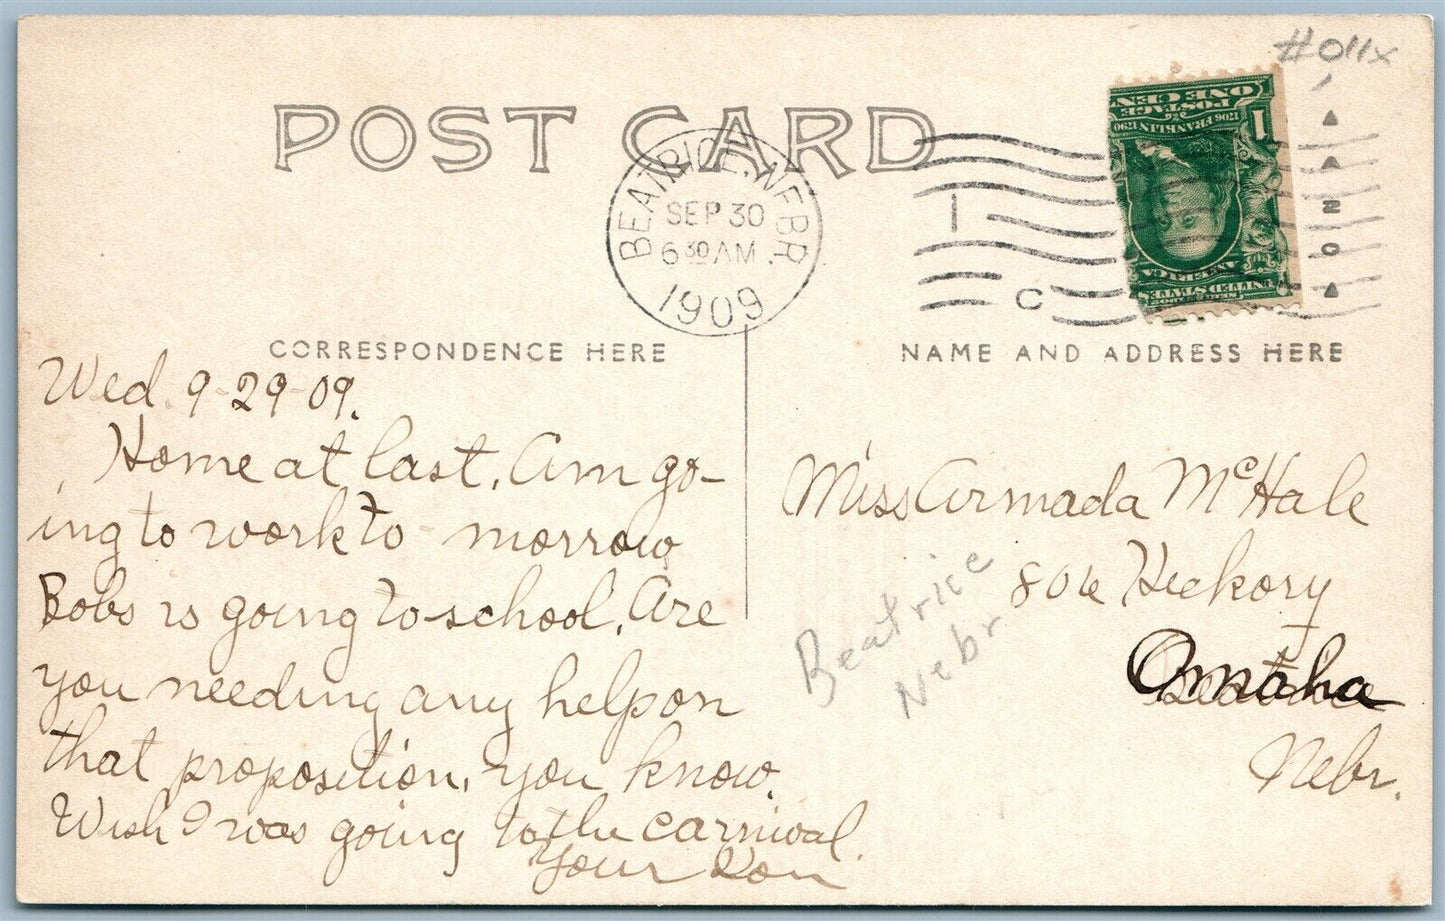 #011x
POST CARD
BEATRICE, NEBR.
SEP 30
6 30 AM
1909
1
C
ONE CENT
POSTAGE
1706 FRANKLIN 1790
1
UNITED STATES
AMERICA
CORRESPONDENCE HERE
NAME AND ADDRESS HERE
Wed. 9-29-09.
Home at last, Am go-
ing to work to-morrow
Bobs is going to school. Are
you needing any help on
that proposition, you know.
Wish I was going to the carnival.
Your
Miss Armada McHale
806 Hickory
Omaha
Nebr.
Beatrice
Nebr.